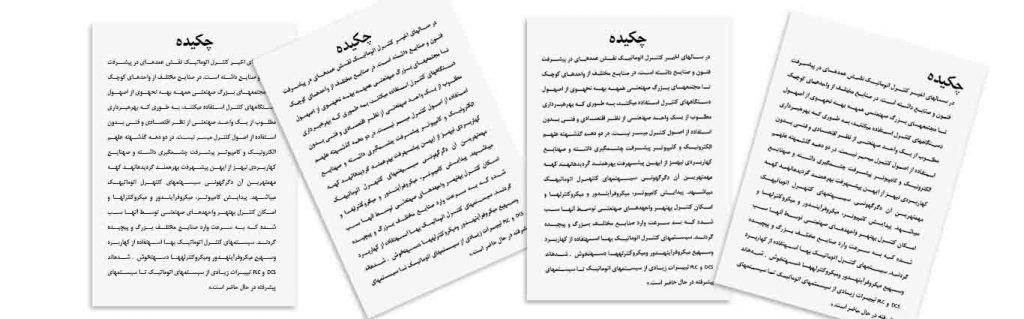 چکیده
در سالهای اخیر کنترل اتوماتیک نقش عمده‌ای در پیشرفت
فنون و صنایع داشته است. در صنایع مختلف از واحدهای کوچک
تا مجتمعهای بزرگ صنعتی همه به نحوی از اصول
دستگاههای کنترل استفاده میکنند، به طوری که بهره‌برداری
مطلوب از یک واحد صنعتی از نظر اقتصادی و فنی بدون
استفاده از اصول کنترل میسر نیست. در دو دهه گذشته علم
الکترونیک و کامپیوتر پیشرفت چشمگیری داشته و صنایع
کاربردی نیز از این پیشرفت بهره‌مند گردیده‌اند که
مهمترین آن دگرگونی سیستمهای کنترل اتوماتیک
میباشد. پیدایش کامپیوتر، میکروفرآیندور و میکروکنترلها و
امکان کنترل بهتر واحدهای صنعتی توسط آنها سبب
شده که به سرعت وارد صنایع مختلف بزرگ و پیچیده
گردند. سیستمهای کنترل اتوماتیک با استفاده از کاربرد
وسیع میکروفرآیندور ومیکروکنترلها دستخوش . شده‌اند
DCS و PLC تغییرات زیادی از سیستمهای اتوماتیک تا سیستمهای
پیشرفته در حال حاضر است.»